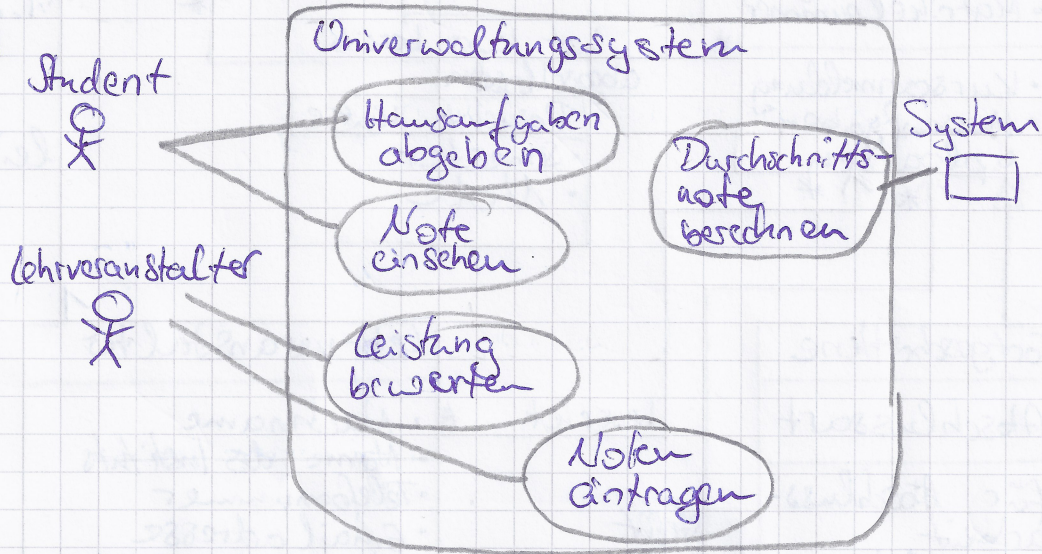 Univerwaltungssystem
Student
Hausaufgaben
abgeben
System
Durchschnitts-
note
berechnen
Note
einsehen
Lehrveranstalter
Leistung
bewerten
Noten
eintragen